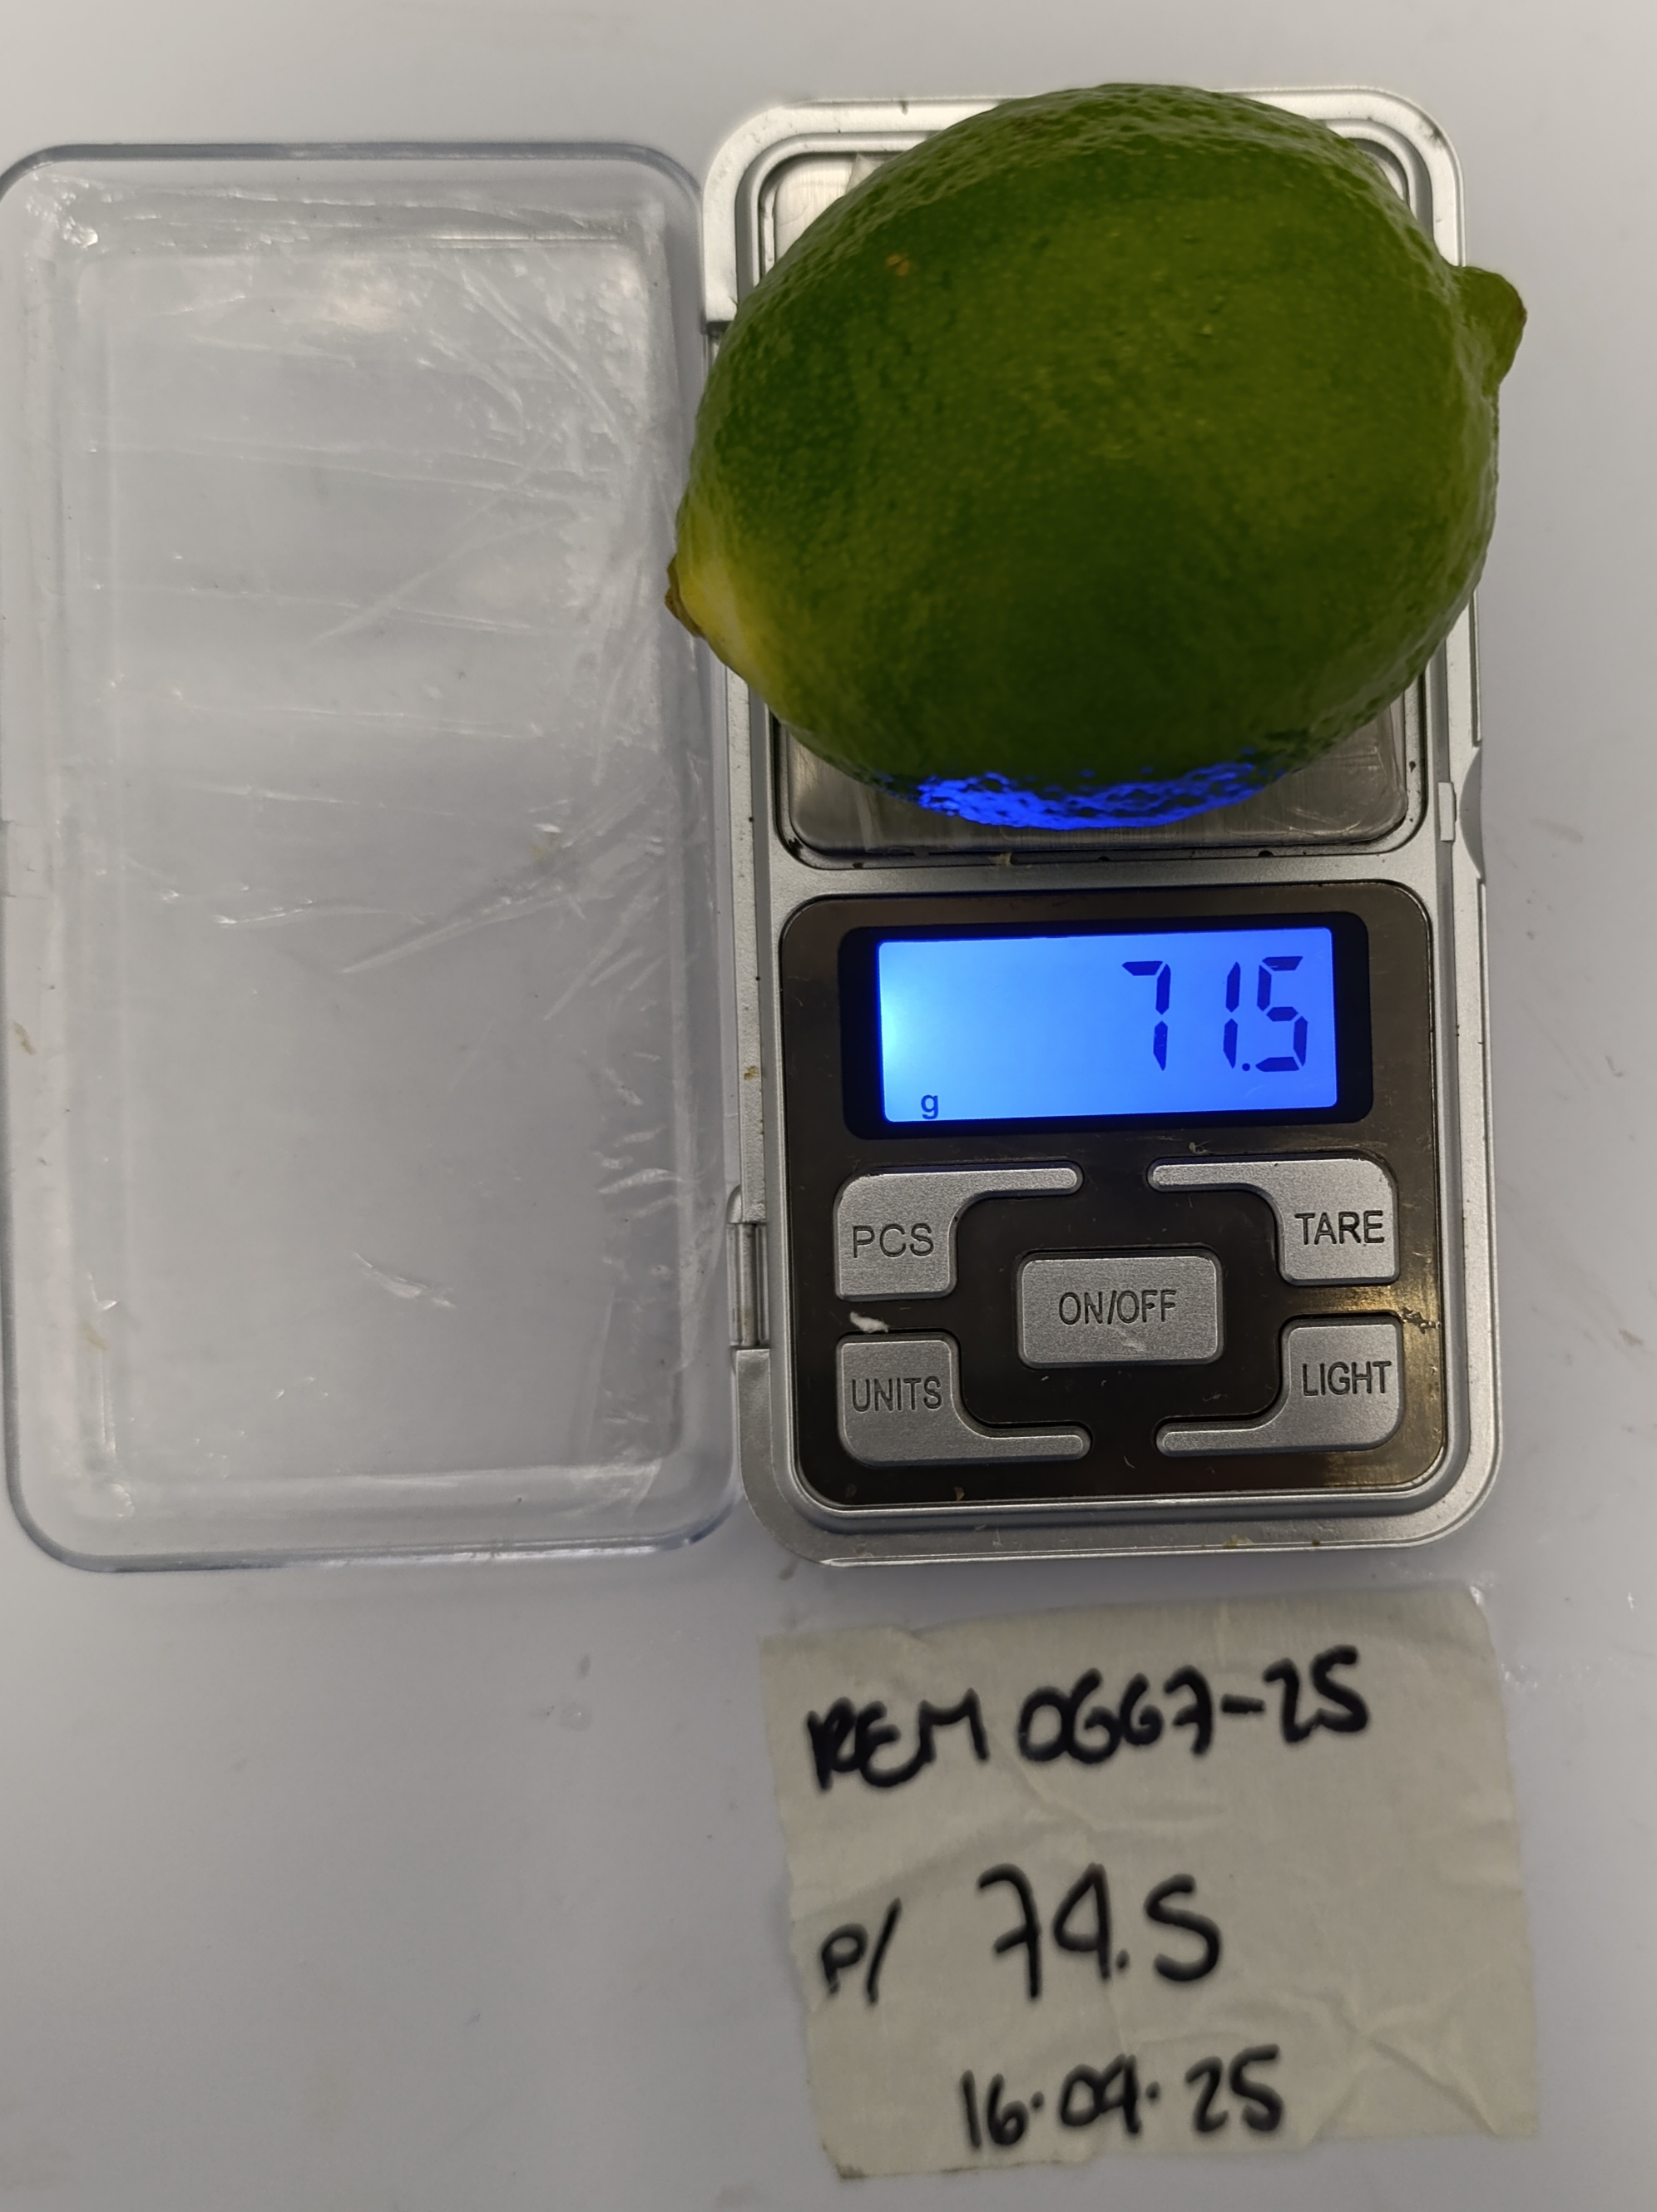 71.5
g
PCS
TARE
ON/OFF
UNITS
LIGHT
REM 0667-25
P/ 74.5
16.04.25